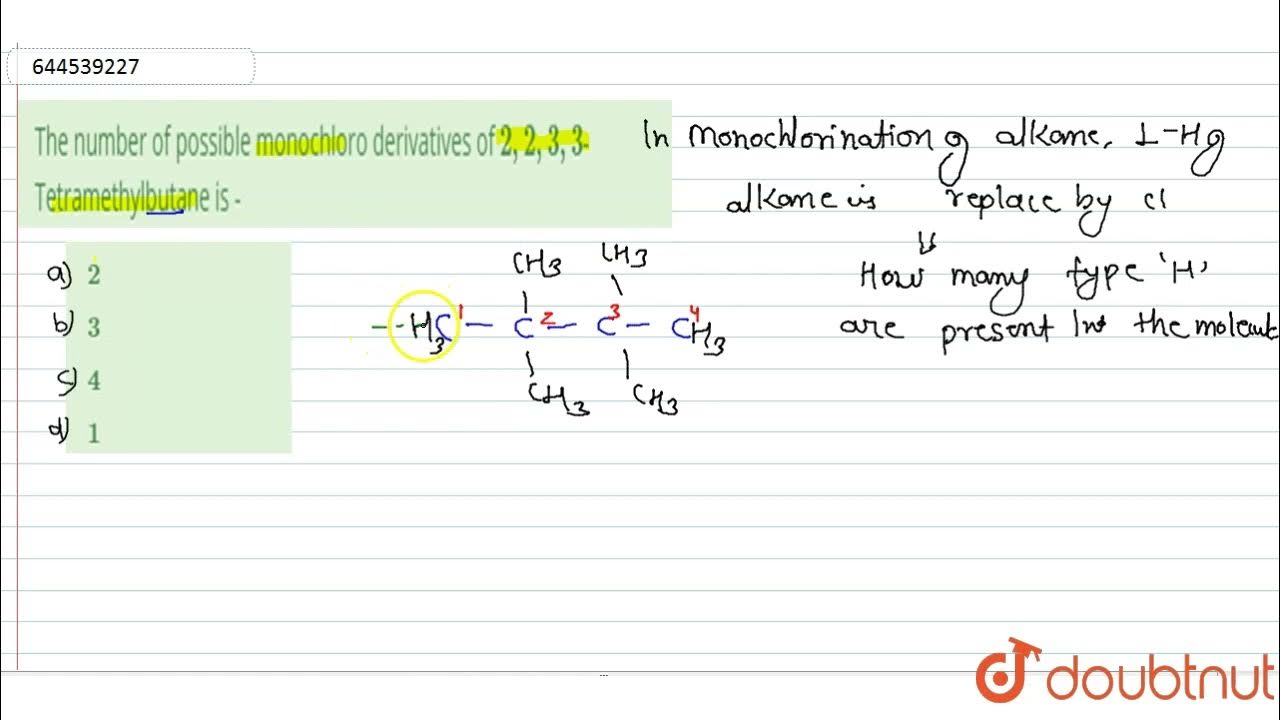 644539227
The number of possible monochloro derivatives of 2, 2, 3, 3-
Tetramethylbutane is -
a) 2
b) 3
c) 4
d) 1
In Monochlorination of alkane, 1-H of
alkane is replace by cl
How many type 'H'
are present In the molecul
CH3 CH3
H3C1 - C2 - C3 - CH3 4
CH3 CH3
doubtnut